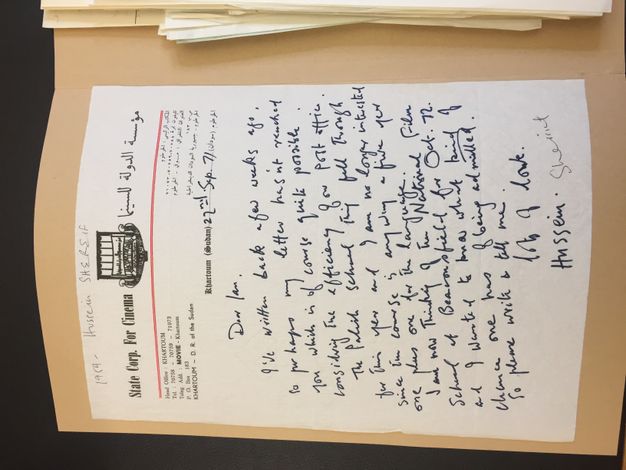 1954 - Hussein SHEREIF
State Corp. For Cinema
مؤسسة الدولة للسينما
Head Office : KHARTOUM
P. O. Box 183
KHARTOUM – D. R. of the Sudan
Khartoum (Sudan) 27 Sep. 71
Dear Ian.
I've written back a few weeks ago.
so perhaps my letter hasn't reached
you which is of course quite possible
considering the efficiency of our Post office.
The Polish School Thing fell through
for this year and I am no longer interested
since the course is anyway a five year
one plus one for the language.
I am now Thinking of the National Film
School at Beaconsfield for Oct. 72.
and I wanted to know what kind of
chance one has of being admitted.
So please write & tell me.
lots of love.
Hussein. Shereif